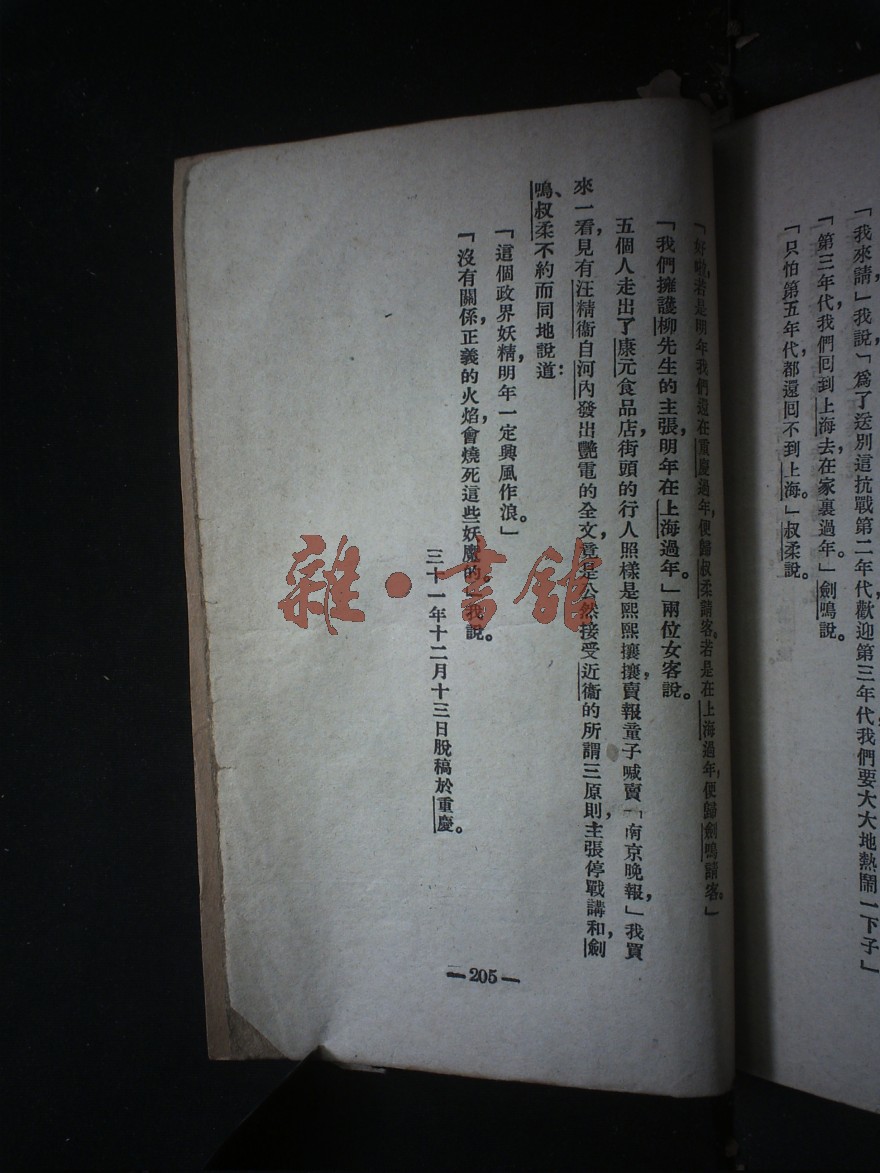 「我來請，」我說，「爲了送別這抗戰第二年代，歡迎第三年代，我們要大大地熱鬧一下子」
「第三年代我們回到上海去，在家裏過年。」劍鳴說。
「只怕第五年代都還回不到上海。」叔柔說。
「好啦，若是明年我們還在重慶過年，便歸叔柔請客。若是在上海過年，便歸劍鳴請客。」
「我們擁護柳先生的主張，明年在上海過年。」兩位女客說。
五個人走出了康元食品店，街頭的行人照樣是熙熙攘攘，賣報童子喊賣「南京晚報」，我買
來一看，見有汪精衞自河內發出艷電的全文，竟是公然接受近衞的所謂三原則，主張停戰講和，劍
鳴、叔柔不約而同地說道：
「這個政界妖精，明年一定興風作浪。」
「沒有關係，正義的火焰，會燒死這些妖魔的。」我說。
三十一年十二月十三日脫稿於重慶。
—205—
雜·書館